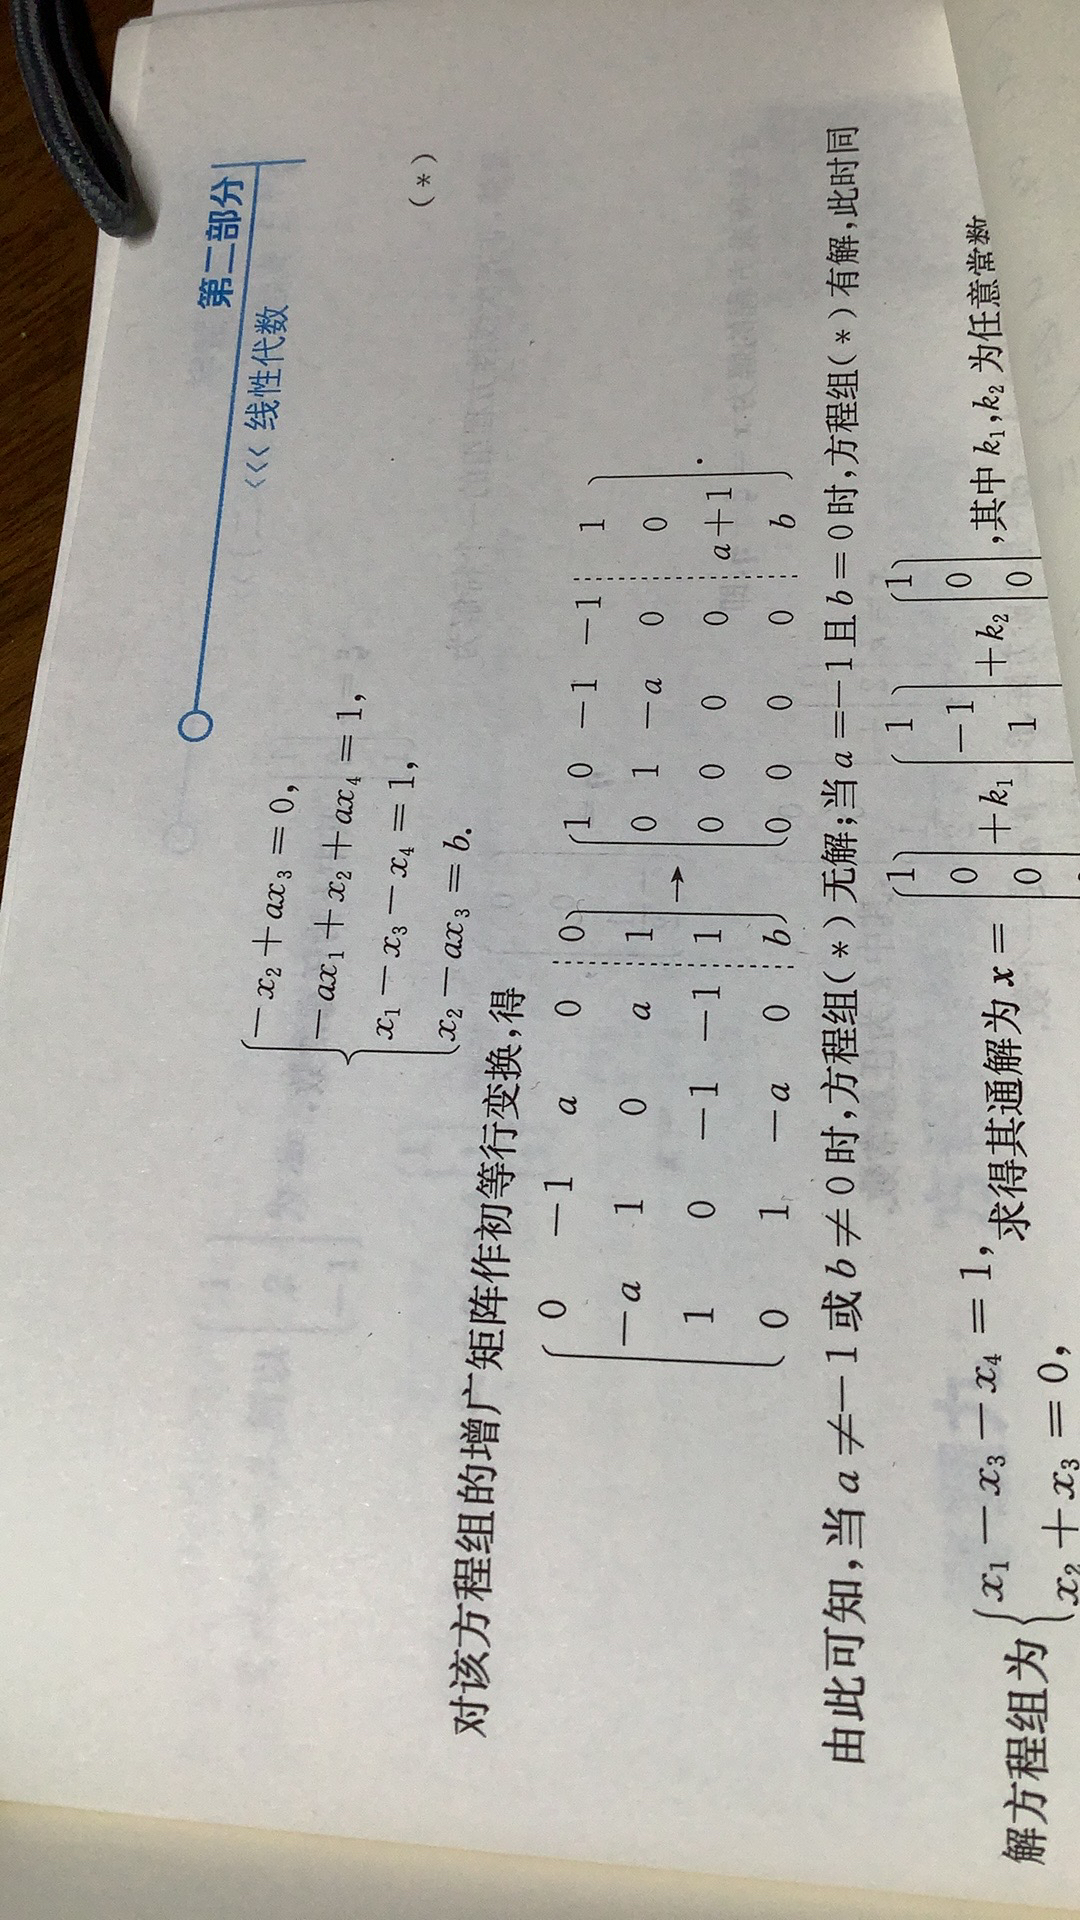 第二部分
<<< 线性代数
-x₂+ax₃=0,
-ax₁+x₂+ax₄=1,
x₁-x₃-x₄=1,
x₂-ax₃=b.
(*)
对该方程组的增广矩阵作初等行变换,得
0 -1 a 0 0
-a 1 0 a 1
1 0 -1 -1 1
0 1 -a 0 b
→
1 0 -1 -1 1
0 1 -a 0 0
0 0 0 0 a+1
0 0 0 0 b
.
由此可知,当a≠-1或b≠0时,方程组(*)无解;当a=-1且b=0时,方程组(*)有解,此时同
解方程组为{x₁-x₃-x₄=1, x₂+x₃=0, 求得其通解为x=(1 0 0 +k₁(1 -1 1 +k₂(1 0 0 ,其中k₁,k₂为任意常数